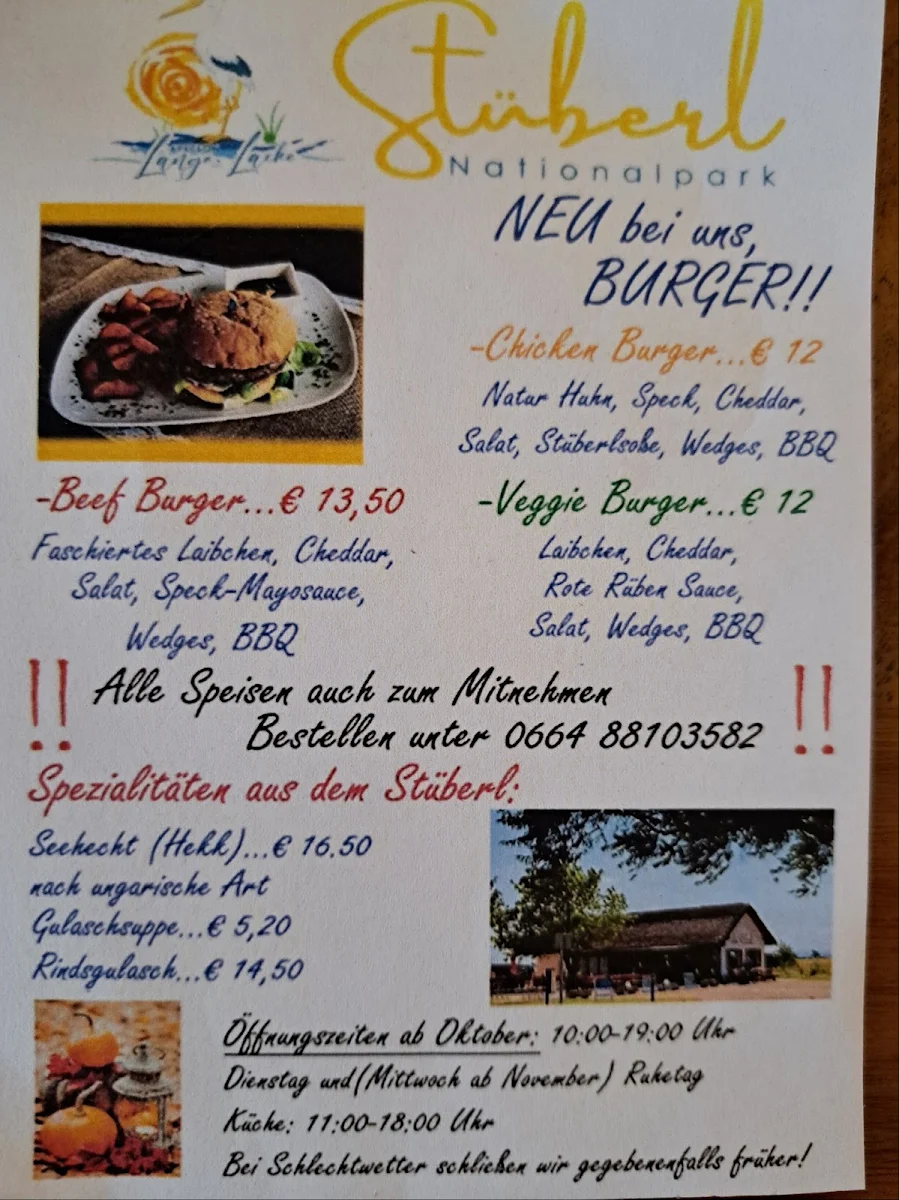 Stüberl
Nationalpark
Lange Lacke
NEU bei uns,
BURGER!!
-Chicken Burger...€ 12
Natur Huhn, Speck, Cheddar,
Salat, Stüberlsoße, Wedges, BBQ
-Beef Burger...€ 13,50
Faschiertes Laibchen, Cheddar,
Salat, Speck-Mayosauce,
Wedges, BBQ
-Veggie Burger...€ 12
Laibchen, Cheddar,
Rote Rüben Sauce,
Salat, Wedges, BBQ
!! Alle Speisen auch zum Mitnehmen !!
Bestellen unter 0664 88103582
Spezialitäten aus dem Stüberl:
Seehecht (Hekk)...€ 16.50
nach ungarische Art
Gulaschsuppe...€ 5,20
Rindsgulasch...€ 14,50
Öffnungszeiten ab Oktober: 10:00-19:00 Uhr
Dienstag und(Mittwoch ab November) Ruhetag
Küche: 11:00-18:00 Uhr
Bei Schlechtwetter schließen wir gegebenenfalls früher!